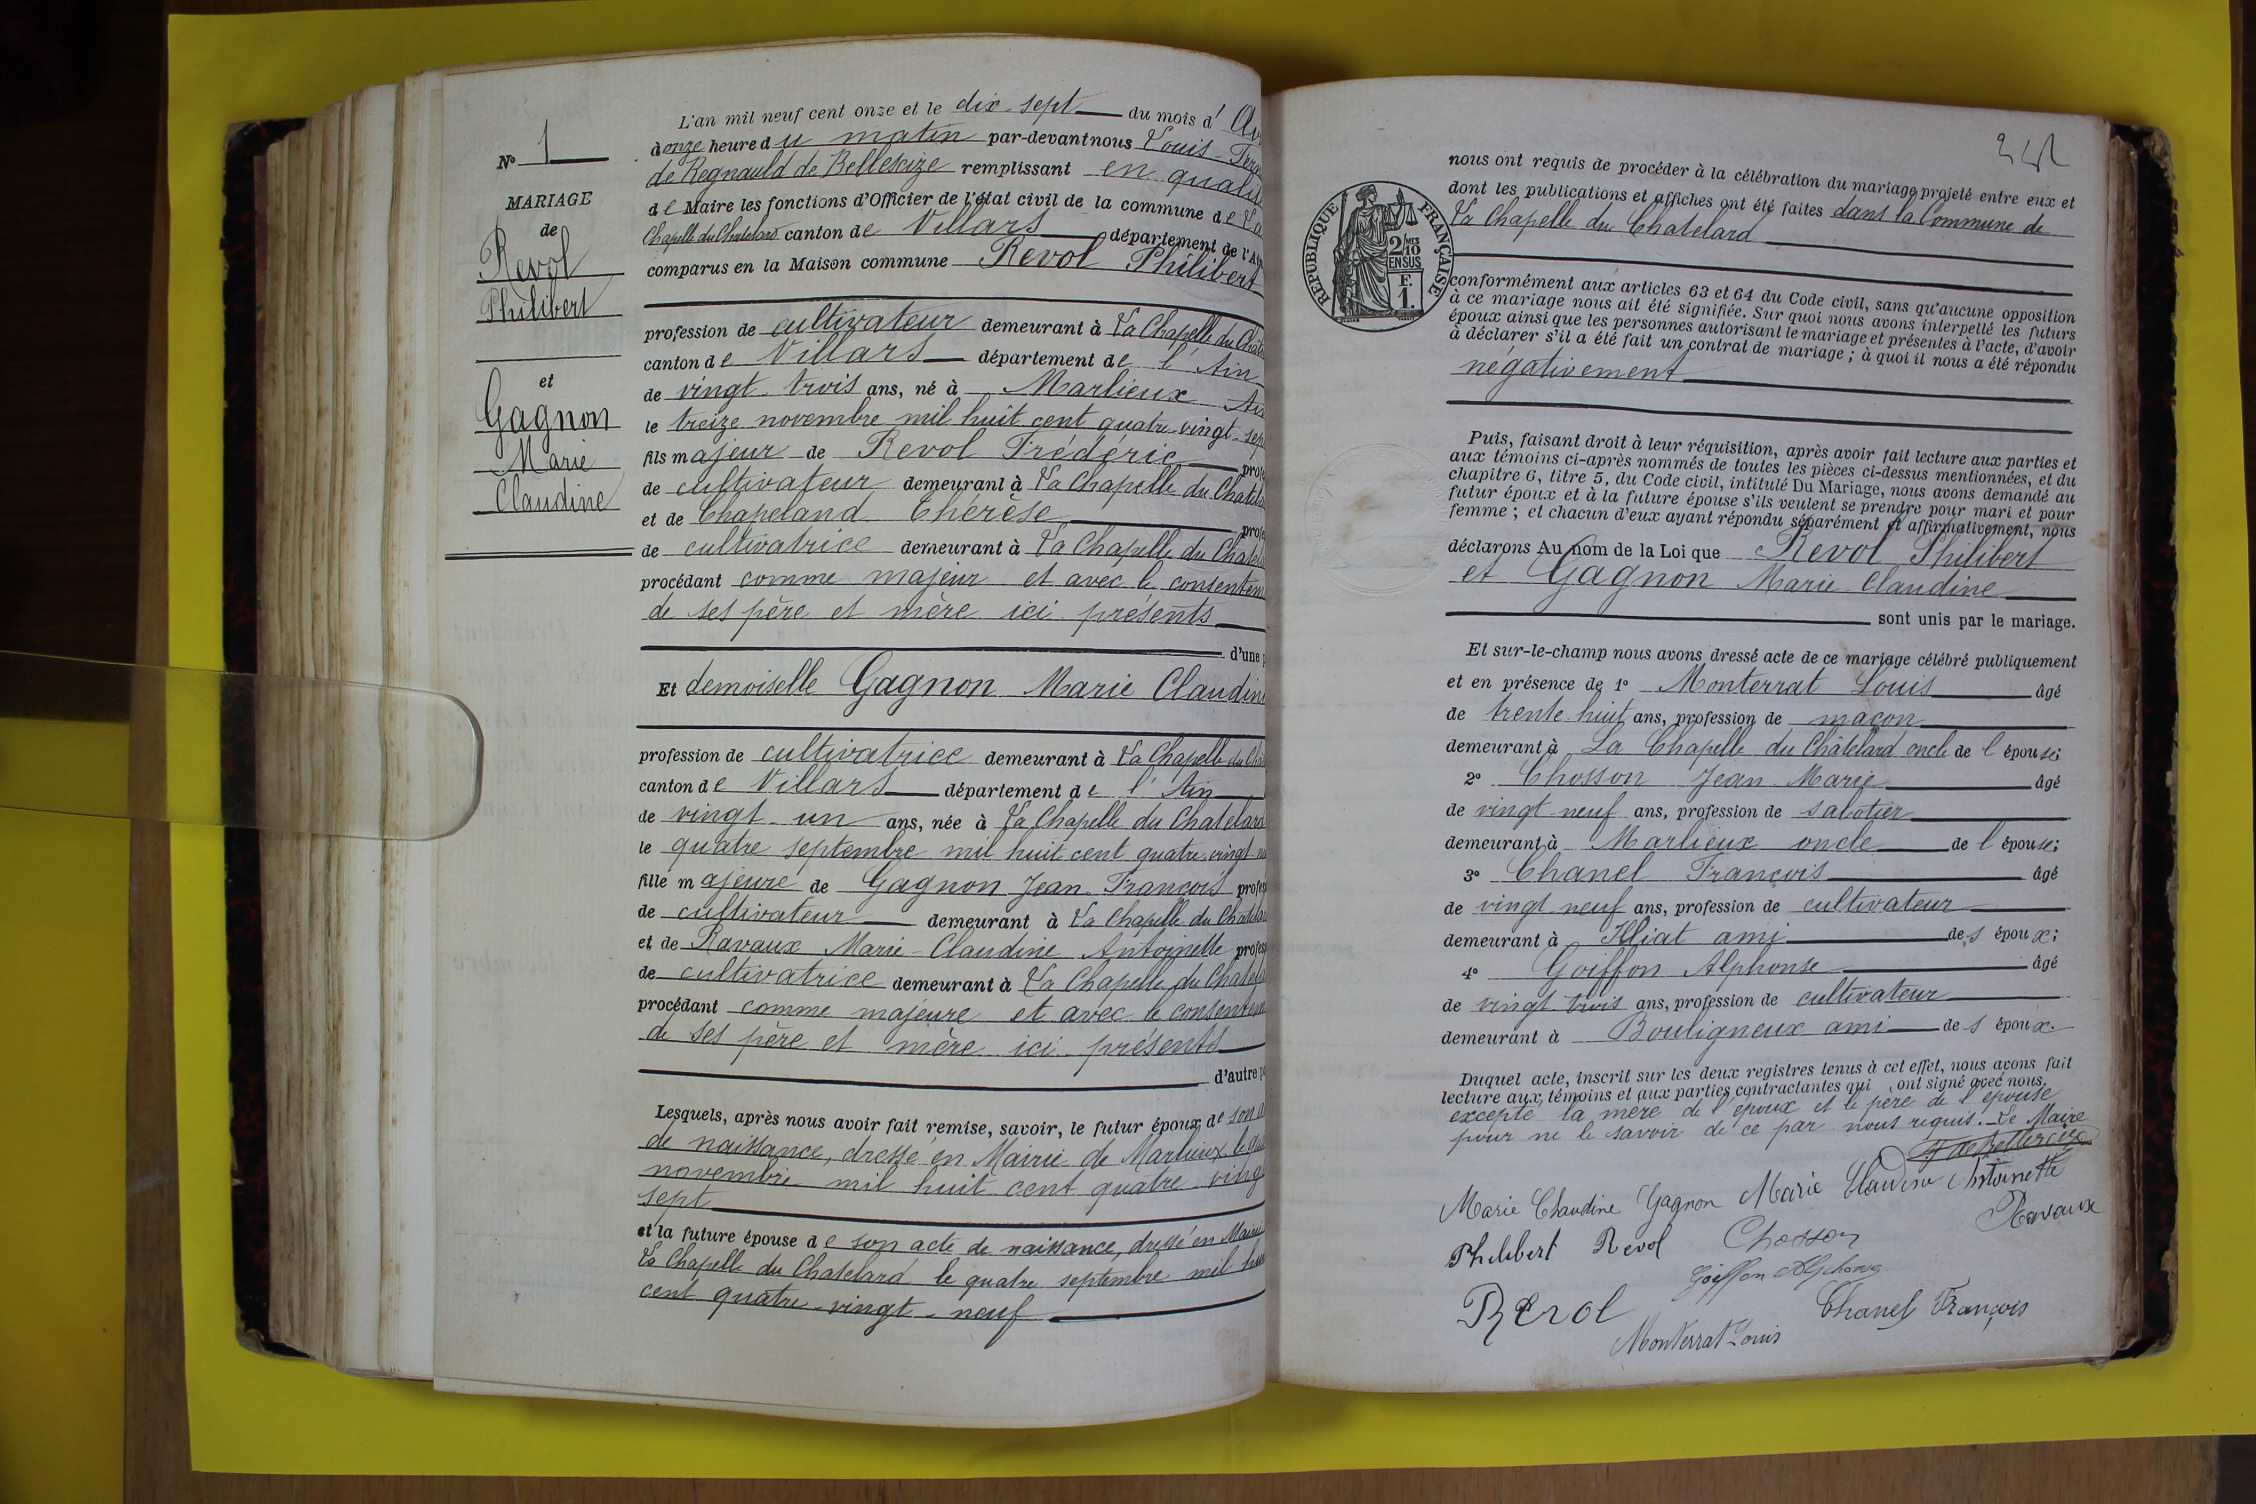 N° 1
MARIAGE
de
Revol
Philibert
et
Gagnon
Marie
Claudine
L'an mil neuf cent onze et le dix-sept du mois d' Av
à onze heure du matin par-devant nous Louis-Fer
de Regnauld de Bellescize remplissant en qualit
de Maire les fonctions d'Officier de l'état civil de la commune de La
Chapelle du Chatelard canton de Villars département de l'Ai
comparus en la Maison commune Revol Philibert
profession de cultivateur demeurant à La Chapelle du Châte
canton de Villars département de l'Ain
de vingt-trois ans, né à Marlieux Ain
le treize novembre mil huit cent quatre-vingt-sep
fils majeur de Revol Frédéric profe
de cultivateur demeurant à La Chapelle du Chatela
et de Chapeland Thérèse profe
de cultivatrice demeurant à La Chapelle du Chatela
procédant comme majeur et avec le consentem
de ses père et mère ici présents
d'une p
Et demoiselle Gagnon Marie Claudine
profession de cultivatrice demeurant à La Chapelle du Cha
canton de Villars département de l'Ain
de vingt-un ans, née à La Chapelle du Chatelard
le quatre septembre mil huit cent quatre-vingt-n
fille majeure de Gagnon Jean-François profes
de cultivateur demeurant à La Chapelle du Chatelar
et de Ravaux Marie-Claudine Antoinette profess
de cultivatrice demeurant à La Chapelle du Chatela
procédant comme majeure et avec le consentem
de ses père et mère ici présents
d'autre pa
Lesquels, après nous avoir fait remise, savoir, le futur époux de son a
de naissance, dressé en Mairie de Marlieux le
novembre mil huit cent quatre-ving
sept
et la future épouse de son acte de naissance, dressé en Mairi
La Chapelle du Chatelard le quatre septembre mil hui
cent quatre-vingt-neuf
RÉPUBLIQUE FRANÇAISE
2/10 MES
EN SUS
F.
1.
nous ont requis de procéder à la célébration du mariage projeté entre eux et
dont les publications et affiches ont été faites dans la Commune de
La Chapelle du Chatelard
conformément aux articles 63 et 64 du Code civil, sans qu'aucune opposition
à ce mariage nous ait été signifiée. Sur quoi nous avons interpellé les futurs
époux ainsi que les personnes autorisant le mariage et présentes à l'acte, d'avoir
à déclarer s'il a été fait un contrat de mariage ; à quoi il nous a été répondu
négativement
Puis, faisant droit à leur réquisition, après avoir fait lecture aux parties et
aux témoins ci-après nommés de toutes les pièces ci-dessus mentionnées, et du
chapitre 6, titre 5, du Code civil, intitulé Du Mariage, nous avons demandé au
futur époux et à la future épouse s'ils veulent se prendre pour mari et pour
femme ; et chacun d'eux ayant répondu séparément et affirmativement, nous
déclarons Au nom de la Loi que Revol Philibert
et Gagnon Marie Claudine
sont unis par le mariage.
Et sur-le-champ nous avons dressé acte de ce mariage célébré publiquement
et en présence de 1° Monterrat Louis âgé
de trente-huit ans, profession de maçon
demeurant à La Chapelle du Châtelard oncle de l'épouse;
2° Chosson Jean-Marie âgé
de vingt-neuf ans, profession de sabotier
demeurant à Marlieux oncle de l'épouse;
3° Chanel François âgé
de vingt-neuf ans, profession de cultivateur
demeurant à Illiat ami des époux;
4° Goiffon Alphonse âgé
de vingt-trois ans, profession de cultivateur
demeurant à Bouligneux ami des époux.
Duquel acte, inscrit sur les deux registres tenus à cet effet, nous avons fait
lecture aux témoins et aux parties contractantes qui ont signé avec nous,
excepté la mère de l'époux et le père de l'épouse
pour ne le savoir de ce par nous requis. Le Maire
Marie Claudine Gagnon Marie Claudine Antoinette
Ravaux
Philibert Revol Chosson
Goiffon Alphonse
Revol Chanel François
Monterrat Louis